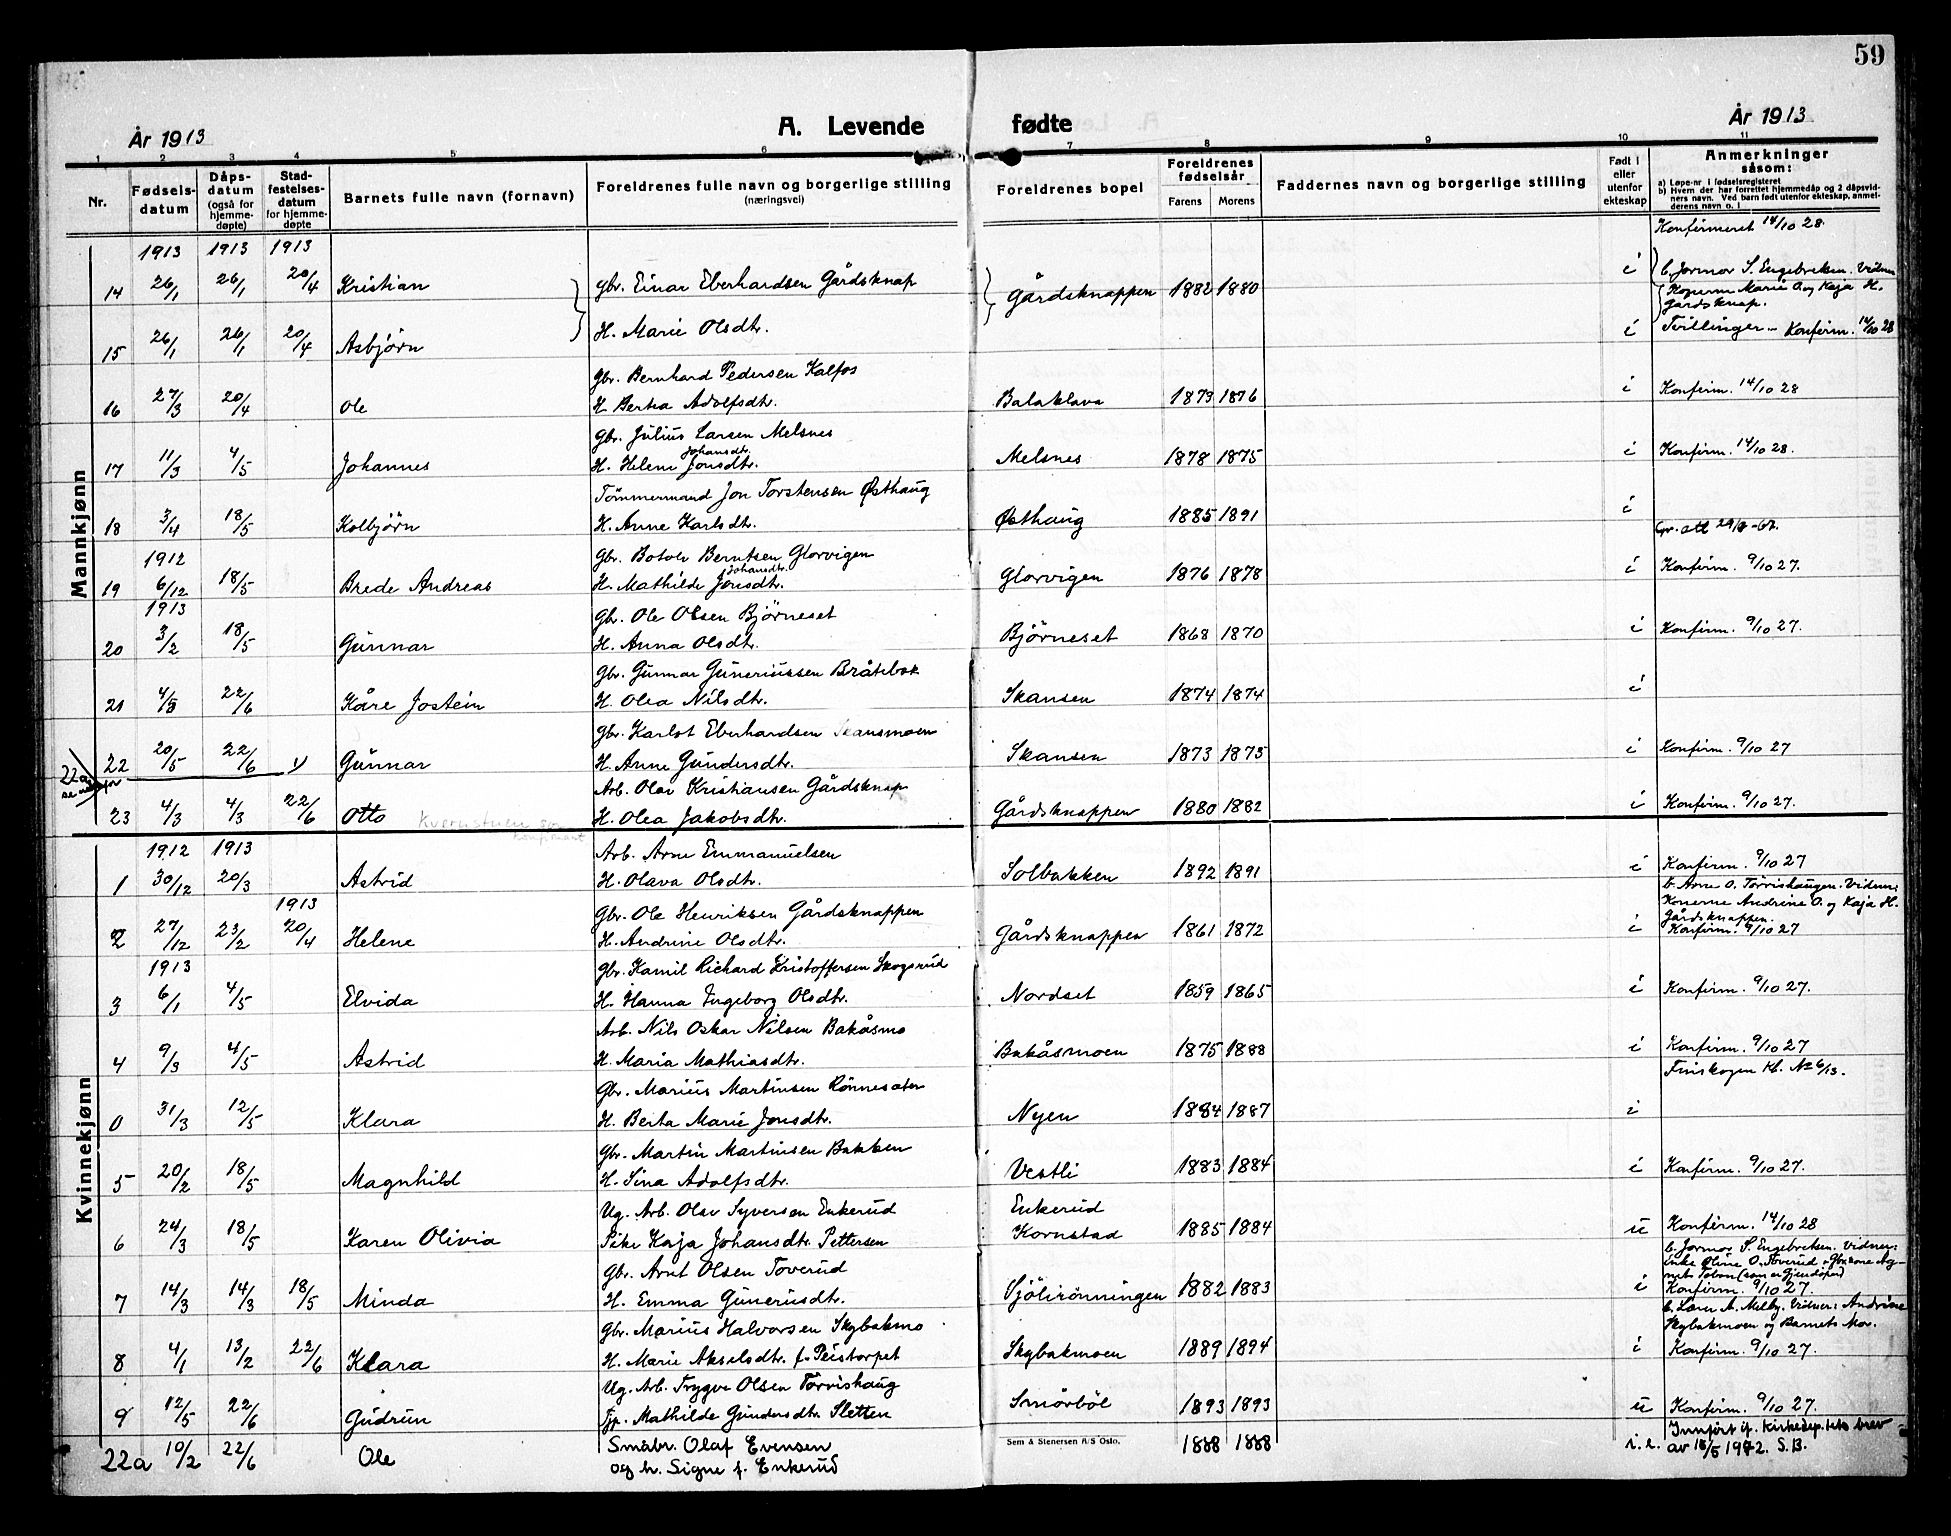 59
År 1913
A. Levende fødte
År 1913
1 2 3 4 5 6 7 8 9 10 11
Nr.
Fødsels-datum
Dåps-datum (også for hjemme-døpte)
Stad-festelses-datum for hjemme-døpte
Barnets fulle navn (fornavn)
Foreldrenes fulle navn og borgerlige stilling (næringsvei)
Foreldrenes bopel
Foreldrenes fødselsår
Farens Morens
Faddernes navn og borgerlige stilling
Født i eller utenfor ekteskap
Anmerkninger såsom:
a) Løpe-nr i fødselsregisteret
b) Hvem der har forrettet hjemmedåp og 2 dåpsvid-
ners navn. Ved barn født utenfor ekteskap, anmel-
derens navn o. l
Mannkjønn
1913 1913 1913 Konfirmeret 14/10 28.
14 26/1 26/1 20/4 Kristian Gbr. Einar Eberhardsen Gårdsknap Gårdsknappen 1882 1880 i b. Jormor S. Engebretsen. Vidner
Konerne Marie O. og Kaja H.
Gårdsknap.
15 26/1 26/1 20/4 Asbjørn H. Marie Olsdtr. i Tvillinger – Konfirm. 14/10 28
Gbr. Bernhard Pedersen Kalfos
16 27/3 20/4 Ole H. Berta Adolfsdtr. Balaklava 1873 1876 i Konfirm. 14/10 28
Gbr. Julius Larsen Melsnes
Johansdtr.
17 11/3 4/5 Johannes H. Helene Jonsdtr. Melsnes 1878 1875 i Konfirm. 14/10 28.
Tömmermand Jon Torstensen Östhaug
18 3/4 18/5 Kolbjørn H. Anne Karlsdtr. Östhaug 1885 1891 i
1912 Gbr. Botolv Berntsen Glorvigen
Johansdtr.
19 6/12 18/5 Brede Andreas H. Mathilde Jonsdtr. Glorvigen 1876 1878 i Konfirm. 9/10 27.
1913 Gbr. Ole Olsen Björneset
20 3/2 18/5 Gunnar H. Anna Olsdtr. Björneset 1868 1870 i Konfirm. 9/10 27.
Gbr. Gunnar Guneriussen Bråtebæk
21 22/6 Kåre Jostein H. Olea Nilsdtr. Skansen 1874 1874 i
Gbr. Karlot Eberhardsen Skansmoen
22 20/5 22/6 Gunnar H. Anne Gundersdtr. Skansen 1873 1875 i Konfirm. 9/10 27
22a se nedenfor
Arb. Olav Kristiansen Gårdsknap
23 4/3 4/3 22/6 Otto H. Olea Jakobsdtr. Gårdsknappen 1880 1882 i Konfirm. 9/10 27.
Kvinnekjønn
1912 1913 Arb. Arne Emmanuelsen
1 30/12 20/3 Astrid H. Olava Olsdtr. Solbakken 1892 1891 i Konfirm. 9/10 27
b. Arne O. Torvishaugen. Vidner:
Konerne Andrine O. og Kaja H.
Gårdsknappen.
1913 Gbr. Ole Henriksen Gårdsknappen
2 27/12 23/2 20/4 Helene H. Andrine Olsdtr. Gårdsknappen 1861 1872 i Konfirm. 9/10 27
1913 Gbr. Kamil Richard Kristoffersen Skogsrud
3 6/1 4/5 Elvida H. Hanna Ingeborg Olsdtr. Nordset 1859 1865 i Konfirm. 9/10 27.
Arb. Nils Oskar Nilsen Bakåsmo
4 9/3 4/5 Astrid H. Maria Mathiasdtr. Bakåsmoen 1875 1888 i Konfirm. 9/10 27
Finskogen Kl. No 6/13.
Gbr. Marius Martinsen Rönnesæter
0 31/3 12/5 Klara H. Berta Marie Jonsdtr. Nyen 1884 1887 i
Gbr. Martin Martinsen Bakken
5 20/2 18/5 Magnhild H. Sina Adolfsdtr. Vestli 1883 1884 i Konfirm. 9/10 27.
Ug. Arb. Olav Syversen Enkerud Enkerud
6 24/3 18/5 Karen Olivia Pike Kaja Johansdtr. Pettersen Kornstad 1885 1884 u Konfirm. 14/10 28
b. Jormor S. Engebretsen. Vidner:
Gbr. Arnt Olsen Toverud
7 14/3 14/3 18/5 Minda H. Emma Gunerusdtr. Sjölirönningen 1882 1883 i Konfirm. 9/10 27.
b. Lars A. Melby. Vidner: Andrine
Skybakmoen og Barnets Mor.
Gbr. Marius Halvorsen Skybakmo
8 4/1 13/2 22/6 Klara H. Marie Akselsdtr. f. Peistorpet Skybakmoen 1889 1894 i Konfirm. 9/10 27.
Ug. Arb. Trygve Olsen Torvishaug
9 12/5 22/6 Gudrun Tjp. Mathilde Gundersdtr. Sletten Smörböl 1893 1893 u Konfirm. 9/10 27.
Sem & Stenersen A/S Oslo.
22a 10/2 22/6 Ole Småbr. Olaf Evensen
og h. Signe f. Enkerud 1888 1888 i. e. Innført if. Kirkedep.tets brev
av 15/5 1972. S.B.